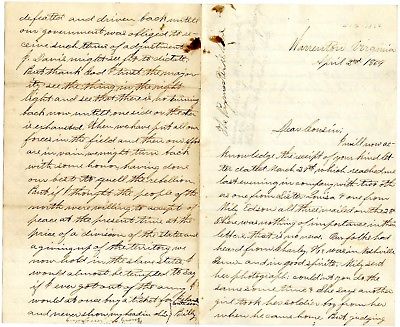 defeated and driven back untill
our government was obliged to re-
ceive such terms of adjustment
J. Davis might see fit to dictate.
But thank God I trust the major-
ity see the thing in the right
light and see that there is no turning
back now untill one side or the other
is exhausted. When we have put all our
forces in the field and their efforts
are in vain we might turn back
with some honor, having done
our best to quell the rebellion.
But if I thought the people of the
north were willing to accept of
peace at the present time at the
price of a division of the states and
a giving up of the territory we
now hold in the slave states I
would almost be tempted to say
if I ever got out of the army I
would at once buy a ticket for
and never show my head in old
Warrenton Virginia
April 2nd 1864
Dear Cousin,
I will now ac-
knowledge the receipt of your kind let-
ter dated March 25th which reached me
last evening in company with two oth-
ers one from Sister Louisa & one from
all three mailed on the 28th
There was nothing of importance in their
letters that is no news. Our folks had
heard from Charley. He was in Nashville
Tenn. and in good spirits. sent
her photograph; couldn't you do the
same some time & she says another
girl took her soldier boy from her
when he came home. But judging